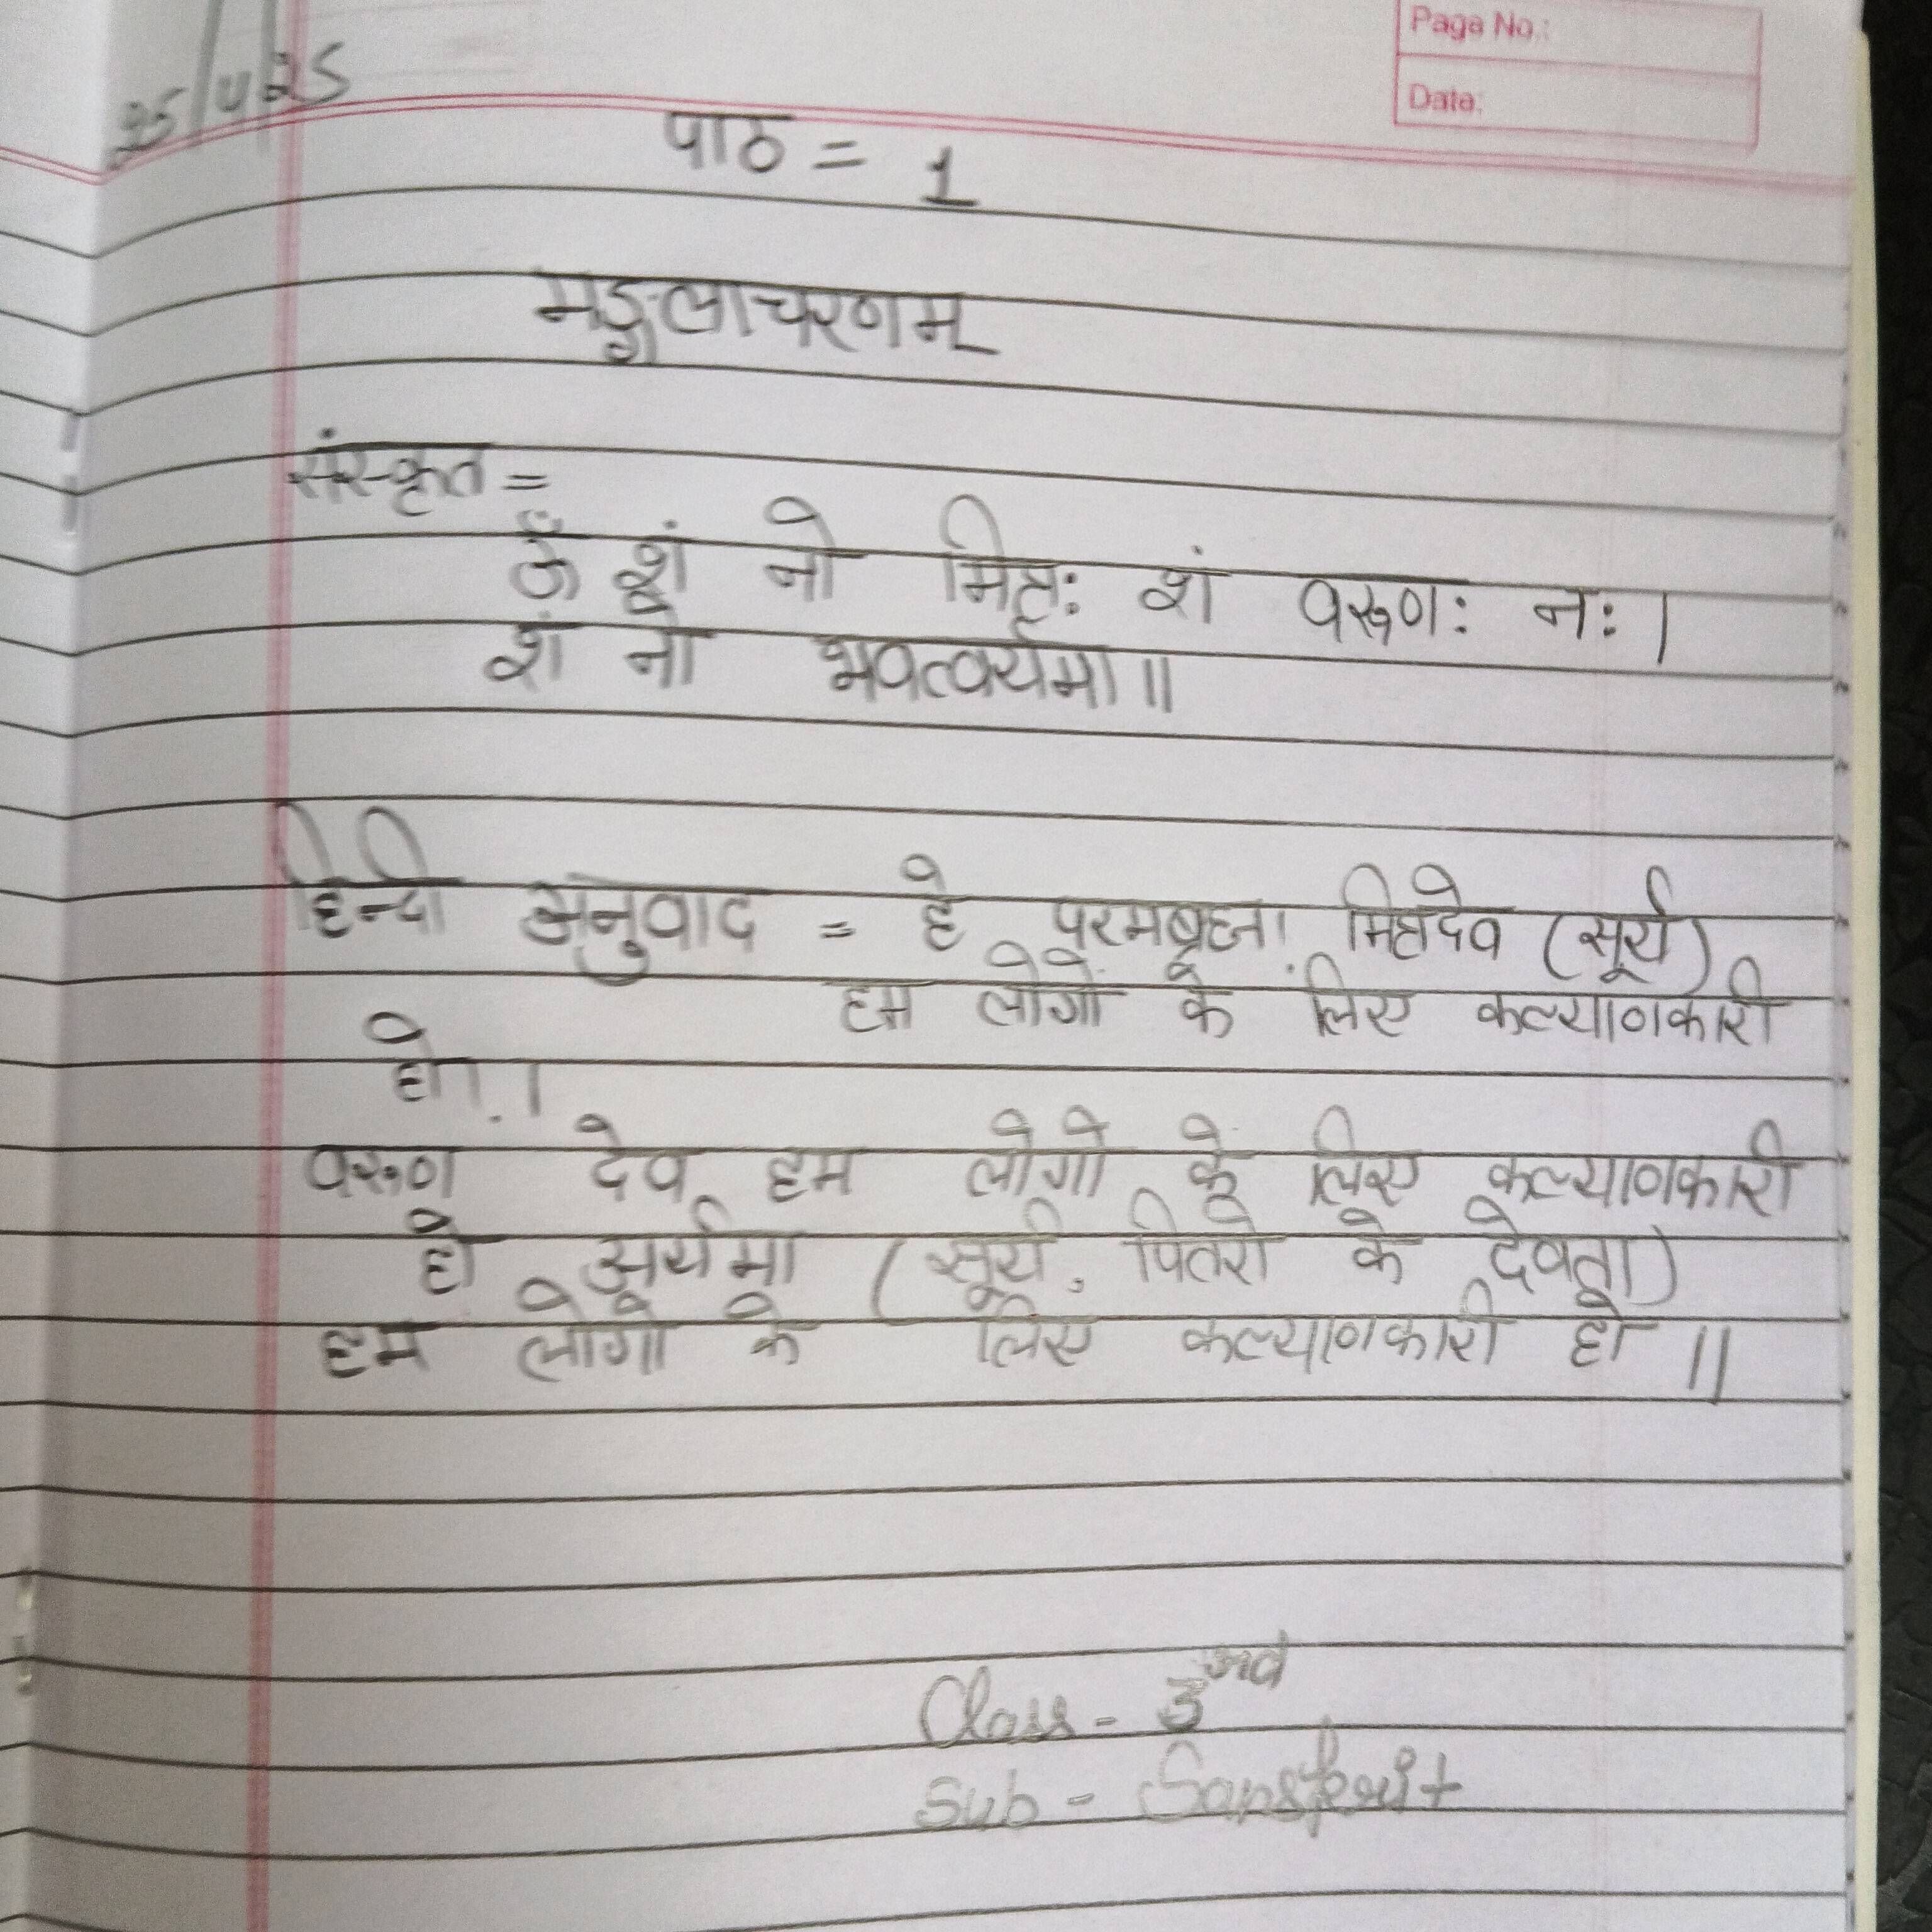 25/4/25
Page No.:
Date:
पाठ = 1
मङ्गलाचरणम्
संस्कृत =
ॐ शं नो मित्रः शं वरूणः नः।
शं नो भवत्वर्यमा॥
हिन्दी अनुवाद = हे परमब्रह्म! मित्रदेव (सूर्य)
हम लोगों के लिए कल्याणकारी
हो।।
वरूण देव हम लोगो के लिए कल्याणकारी
हो अर्यमा (सूर्य. पितरो के देवता)
हम लोगो के लिए कल्याणकारी हो ॥
Class - 3rd
Sub - Sanskrit